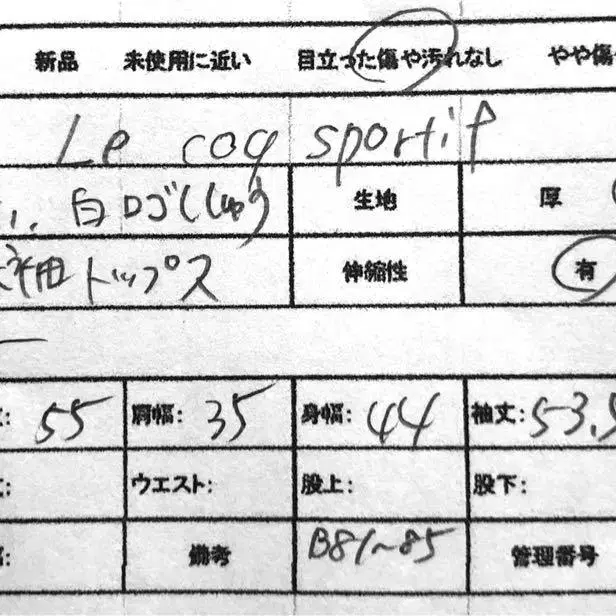 新品 未使用に近い 目立った傷や汚れなし やや傷
Le coq sportif
白ロゴししゅう 生地 厚
袖トップス 伸縮性 有
55 肩幅: 35 身幅: 44 袖丈: 53.5
ウエスト: 股上: 股下:
備考 B81~85 管理番号